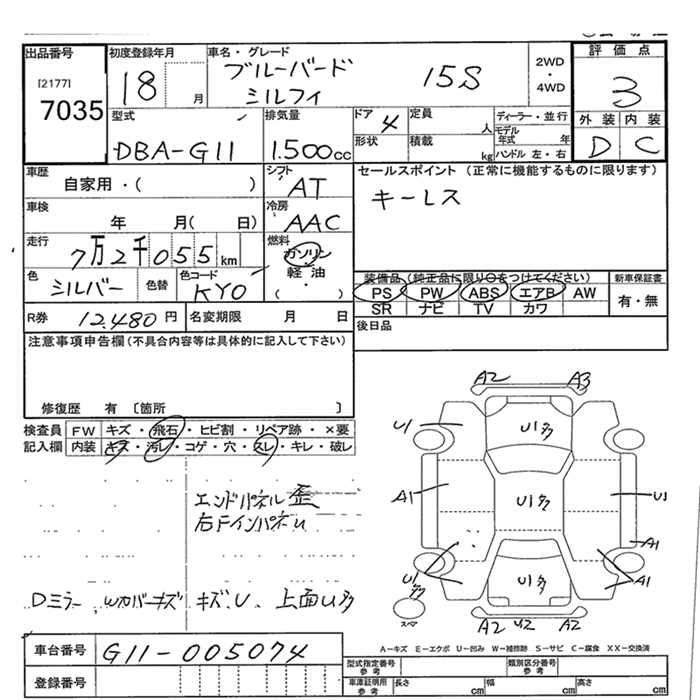 出品番号
[2177]
7035
初度登録年月
18 月
車名・グレード
ブルーバード
シルフィ
15S
2WD
・
4WD
評価点
3
外装 内装
D C
型式
DBA-G11
排気量
1.500cc
ドア 4
形状
定員 人
積載 kg
ディーラー・並行
モデル年式 年
ハンドル 左・右
車歴
自家用・( )
シフト
AT
車検
年 月( 日)
冷房
AAC
走行
7万2千055km
燃料
ガソリン
軽油
( ・ )
色
シルバー
色替
色コード
KY0
R券 12.480円
名変期限 月 日
セールスポイント(正常に機能するものに限ります)
キーレス
装備品(純正品に限り○をつけてください)
PS PW ABS エアB AW
SR ナビ TV カワ
新車保証書
有・無
後日品
注意事項申告欄(不具合内容等は具体的に記入して下さい)
修復歴 有 〔箇所 〕
検査員 FW キズ・飛石・ヒビ割・リペア跡・×要
記入欄 内装 キズ・汚レ・コゲ・穴・スレ・キレ・破レ
エンドパネル歪
右Fインパネu
Dミラー、Wカバーキズ キズ.U、上面u多
A2 A3
U1 U1多
A1 U1多 U1
A1
U1多 U1多 A1
スマ
A2 U2 A2
A−キズ E−エクボ U−凹み W−補修跡 S−サビ C−腐食 XX−交換済
車台番号
G11-005074
登録番号
型式指定番号
参考
類別区分番号
参考
車庫証明用
参考
長さ cm
幅 cm
高さ cm